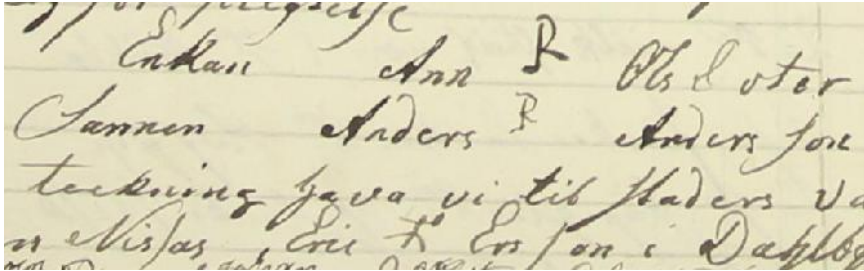 Enkan Ann R Ols doter
Sannen Anders R Anders son
teckning hava vi til staders va
Nissas, Eric Ers son i Dahlby